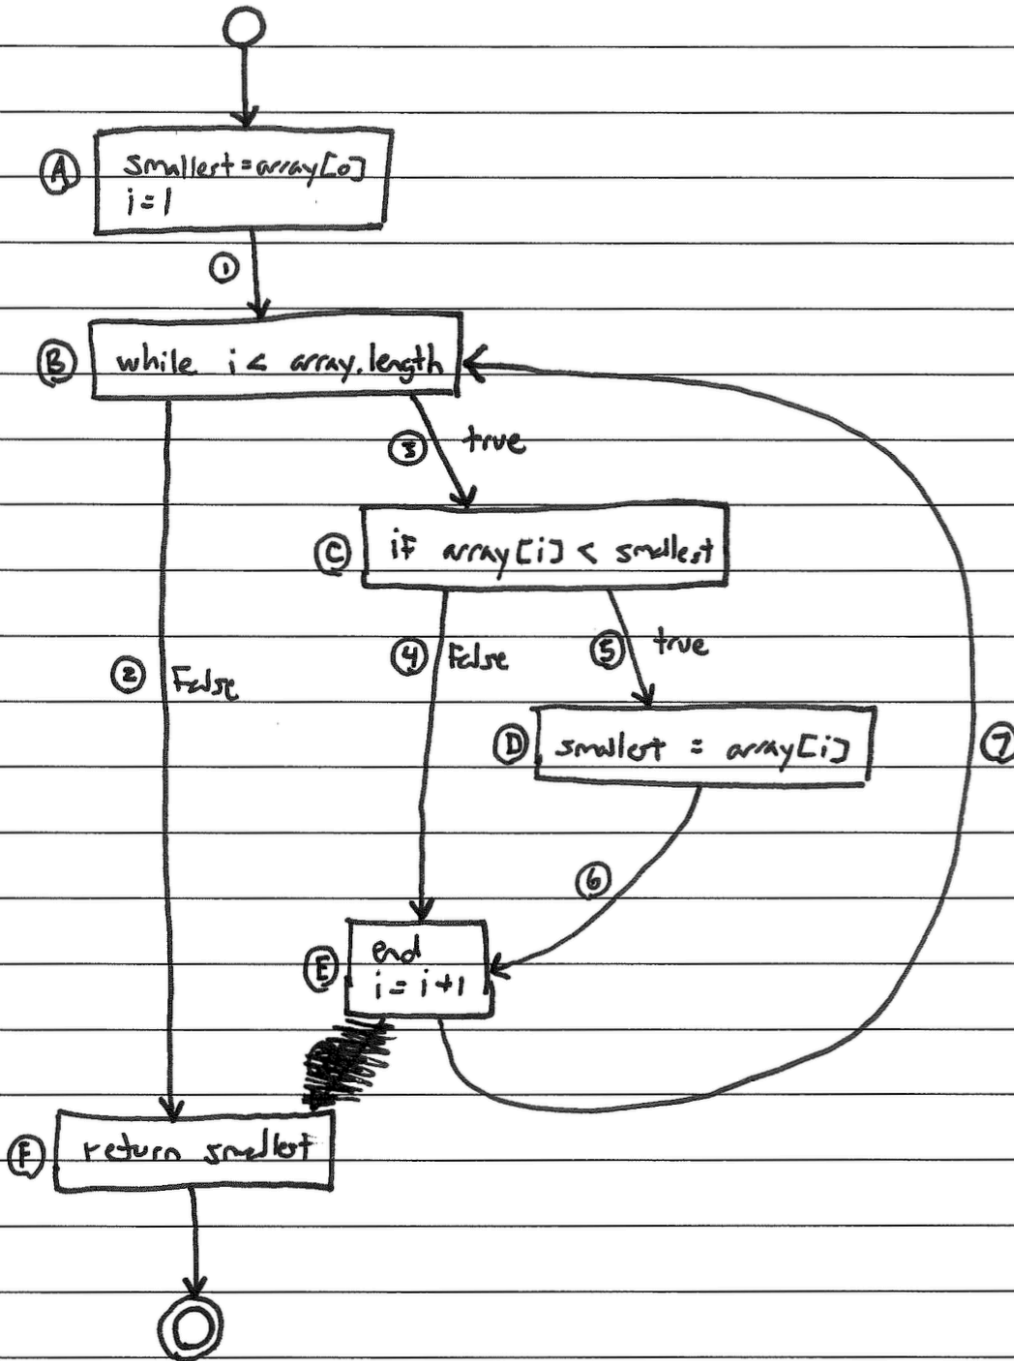 A
smallest = array[0]
i = 1
1
B
while i < array.length
3 true
C
if array[i] < smallest
2 False
4 False
5 true
D
smallest = array[i]
7
6
E
end
i = i + 1
F
return smallest